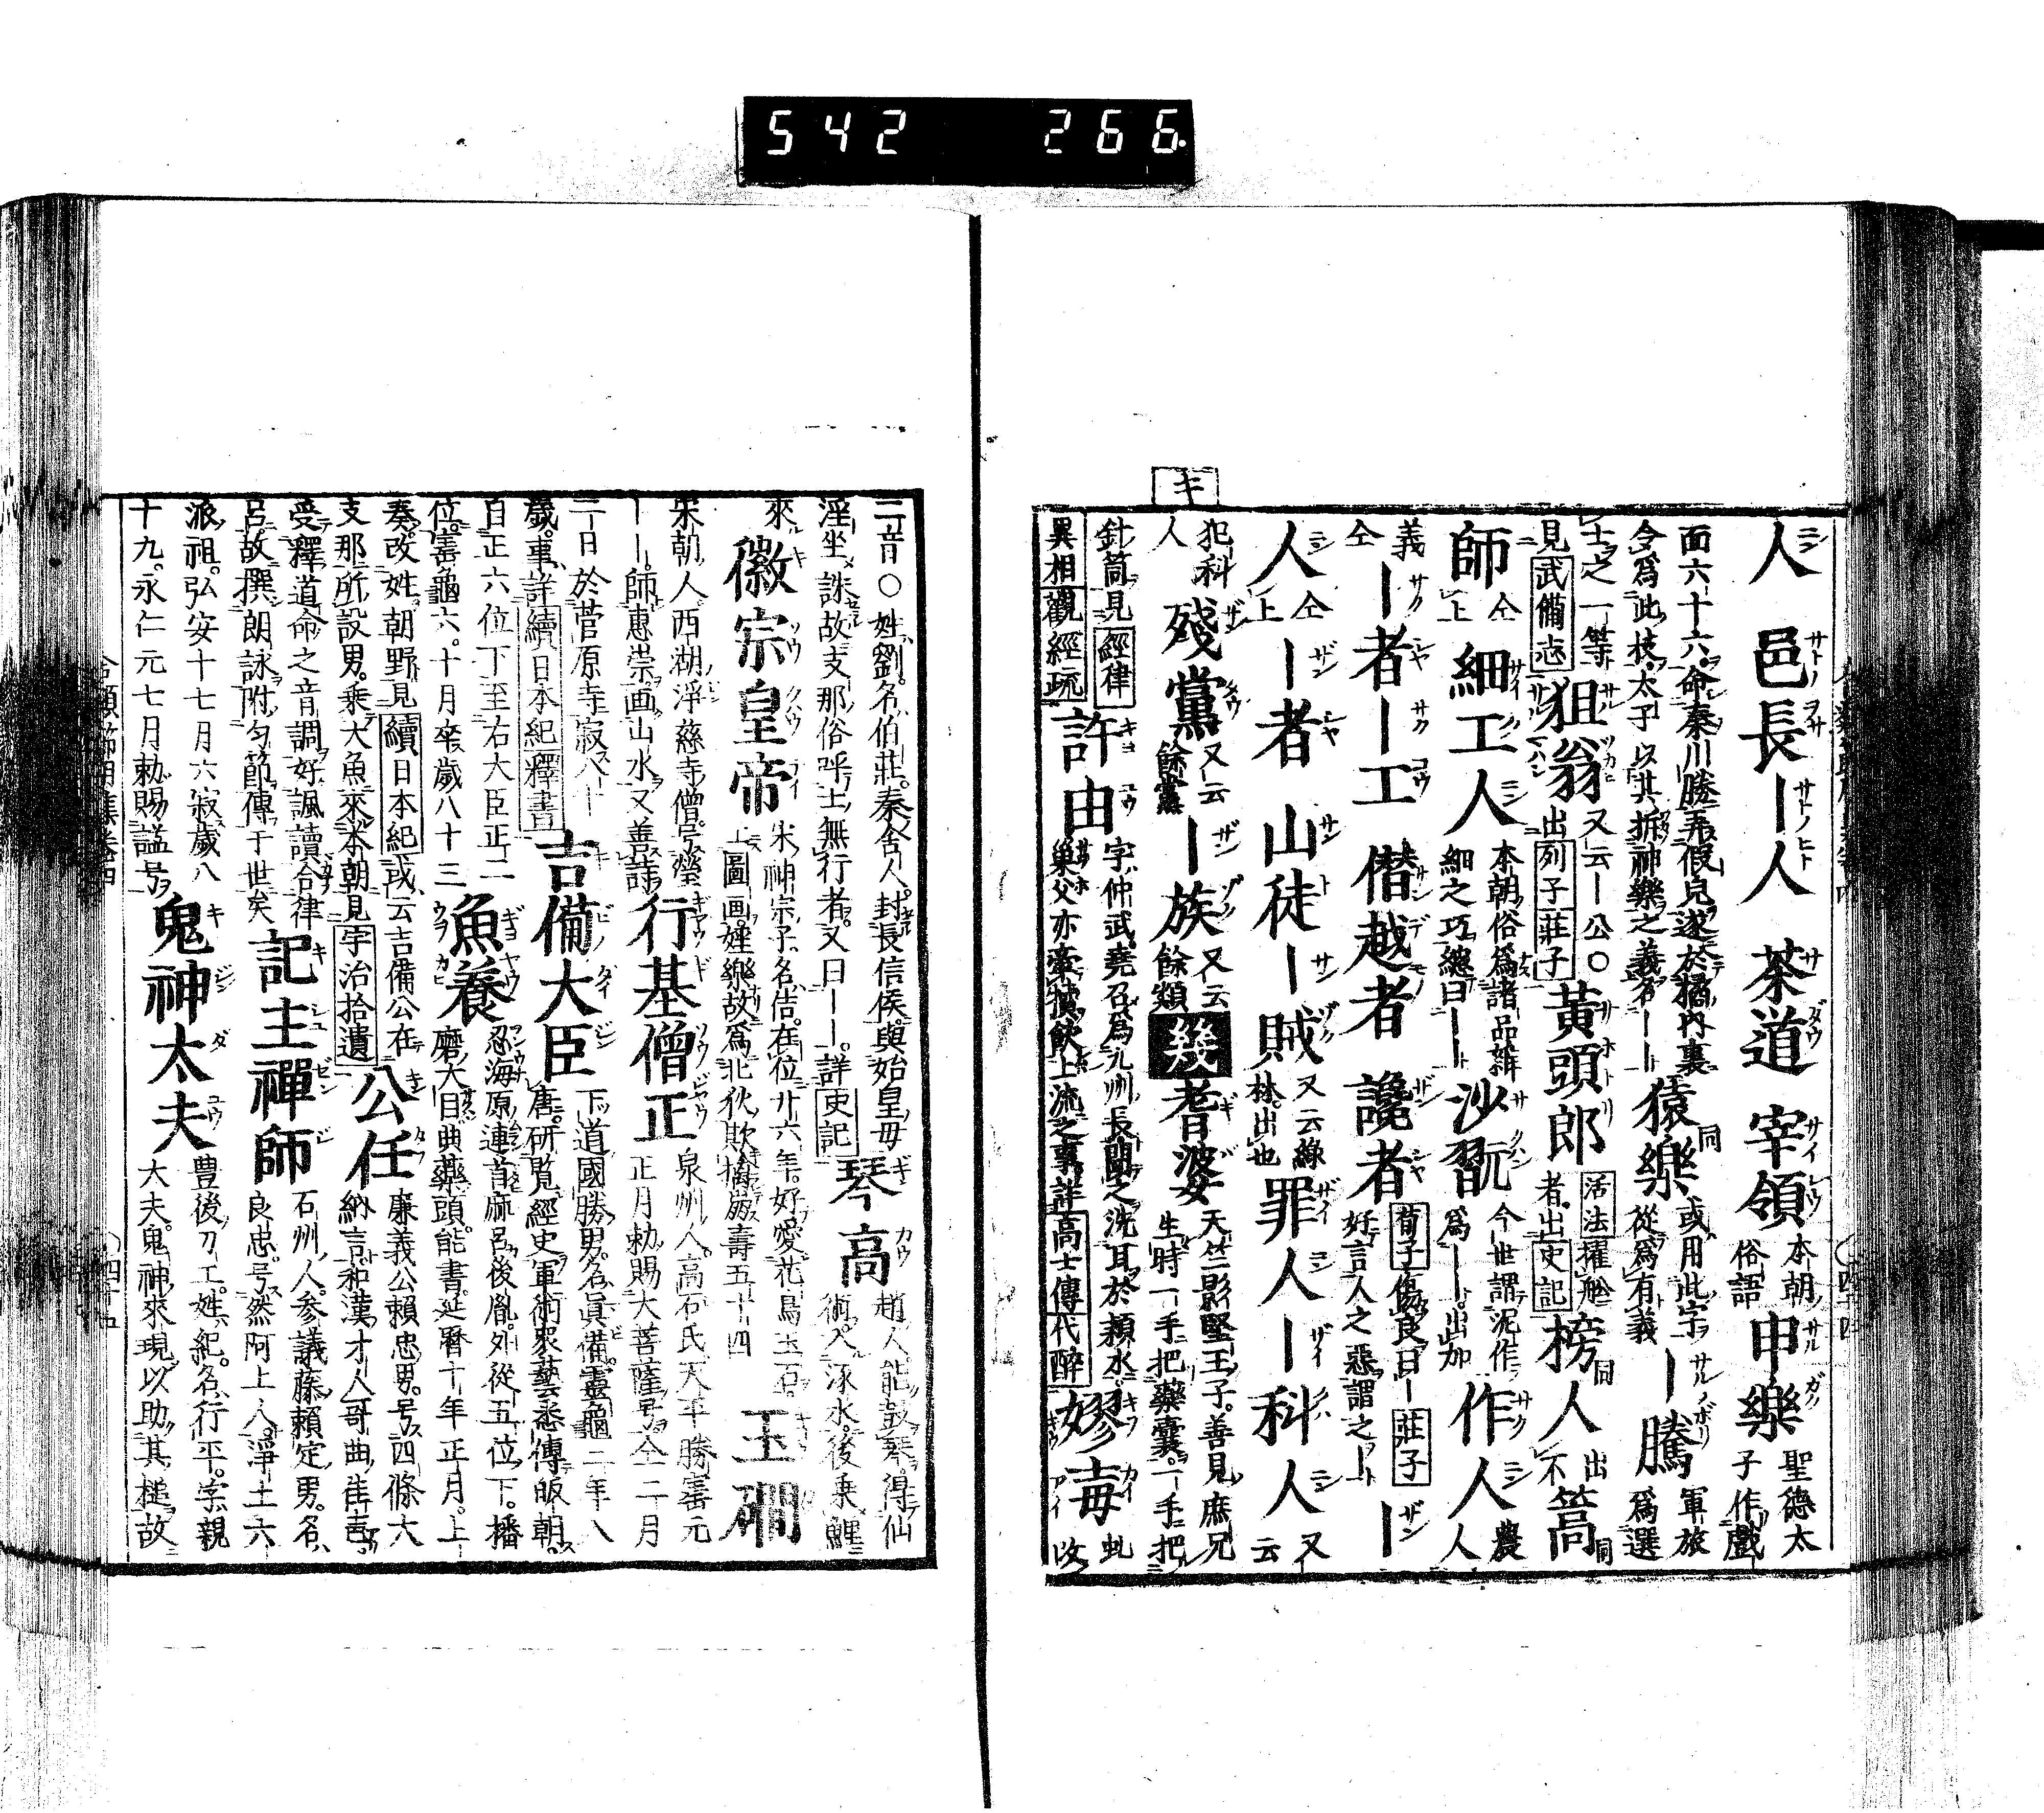 542 266
人 邑長 ー人 茶道 宰領 本朝俗語 申樂 聖德太子作戲
面六十六。命秦川勝弄假兒遂於橘內裏
令爲此枝太子以其拆神樂之義名ーー 猿樂 同 或用此字從爲有義 ー騰 軍旅爲選
士之一等見武備志 狙翁 又云ー公〇出列子莊子 黃頭郎 活法擢舩者出史記 榜人 同出不 篙 同
師 仝上 細工人 本朝俗爲諸品雜細之巧總曰ーー 沙翫 今世謂泥作爲ーー。出加 作人 農人
義仝 ー者 ー工 僭越者 讒者 荀子傷良曰ー莊子好言人之惡謂之ー ー
人 仝上 ー者 山徒 ー賊 又云綠林。出也 罪人 ー科人 又云
犯科人 殘黨 又云餘黨 ー族 又云餘類
キ
耆婆 天竺影堅王子。善見庶兄生時一手把藥囊。一手把
針筒見經律異相觀經疏 許由 字仲武。堯召爲九州長聞之洗耳於潁水巢父亦牽犢飲上流之事詳高士傳代醉 嫪毐 虬收
二音〇姓劉。名伯莊。秦舍人。封長信侯。與始皇母
淫坐誅故支那俗呼士無行者。又曰ーー。詳史記 琴高 趙人能鼓琴得仙術入涿水。後乘鯉
來 徽宗皇帝 宋神宗子名佶。在位廿六年。好愛花鳥玉石。上圖画婬樂故爲北狄欺擒崩壽五十四 玉磵
宋朝人西湖淨慈寺僧。号瑩ーー。師惠崇画山水又善詩 行基僧正 泉州人。高石氏天平勝寶元正月勅賜大菩薩号仝二月
二日於菅原寺寂八十歲。事詳續日本紀釋書 吉備大臣 下道國勝男。名眞備。靈龜二年八唐。研覧經史軍術衆藝悉傳皈朝。
自正六位下至右大臣正二位。寶龜六。十月卒歲八十三 魚養 忍海原連首麻呂後胤。外從五位下。播磨大目典藥頭。能書。延曆十年正月。上
奏。改姓。朝野見續日本紀或云吉備公在
支那所設男。乘大魚來本朝見宇治拾遺 公任 廉義公賴忠男。号四條大納言。和漢才人哥曲佳言。
受釋道命之音調好諷讀合律
呂。故撰朗詠附勻節傳于世矣 記主禪師 石州人。參議藤賴定男。名良忠。号然阿上人。淨土六
派祖。弘安十七月六寂歲八
十九。永仁元七月勅賜謚号 鬼神太夫 豊後刀工。姓紀。名行平。字親大夫。鬼神來現以助其槌故
合類節用集卷四